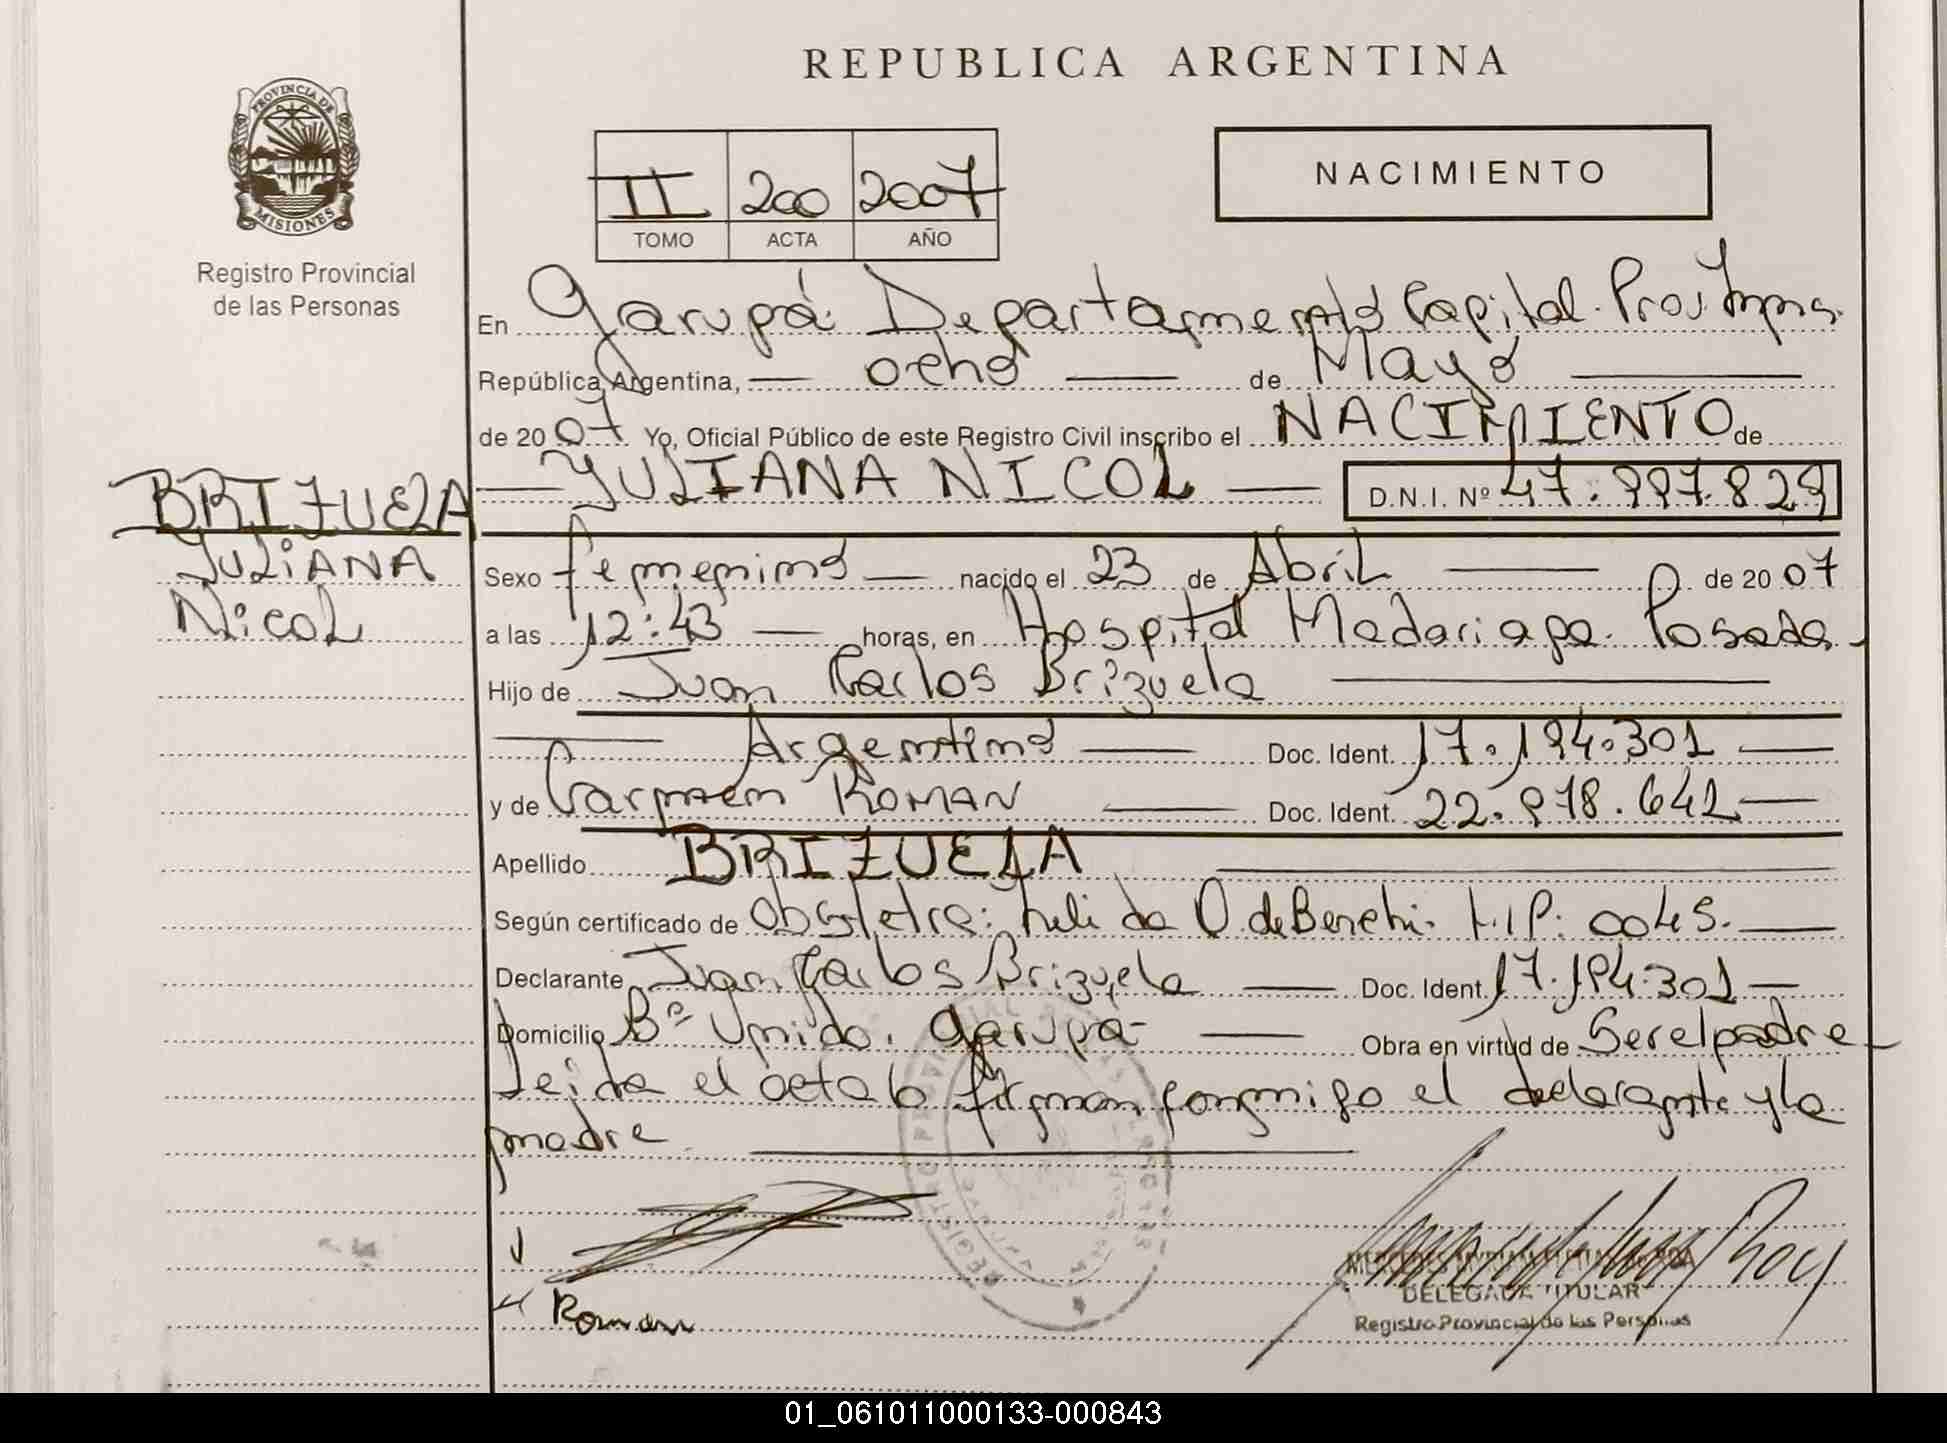 REPUBLICA ARGENTINA
PROVINCIA DE
MISIONES
Registro Provincial
de las Personas
II 200 2007
TOMO ACTA AÑO
NACIMIENTO
En Garupá Departamento Capital. Prov. Mnes.
República Argentina, ocho de Mayo
de 2007. Yo, Oficial Público de este Registro Civil inscribo el NACIMIENTO de
BRIZUELA
JULIANA
NicoL
JULIANA NICOL D.N.I. Nº 47.997.829
Sexo femenino nacido el 23 de Abril de 2007
a las 12:43 horas, en Hospital Madariaga. Posadas
Hijo de Juan Carlos Brizuela
Argentino Doc. Ident. 17.194.301
y de Carmen ROMAN Doc. Ident. 22.978.642
Apellido BRIZUELA
Según certificado de Obstetra: O. de
Declarante Juan Carlos Brizuela Doc. Ident. 17.194.301
Domicilio Bº Unido. Garupá Obra en virtud de Ser el padre
Leida el acta la firman conmigo el declarante y la
madre
Roman
ROA
DELEGADA TITULAR
Registro Provincial de las Personas
01_061011000133-000843